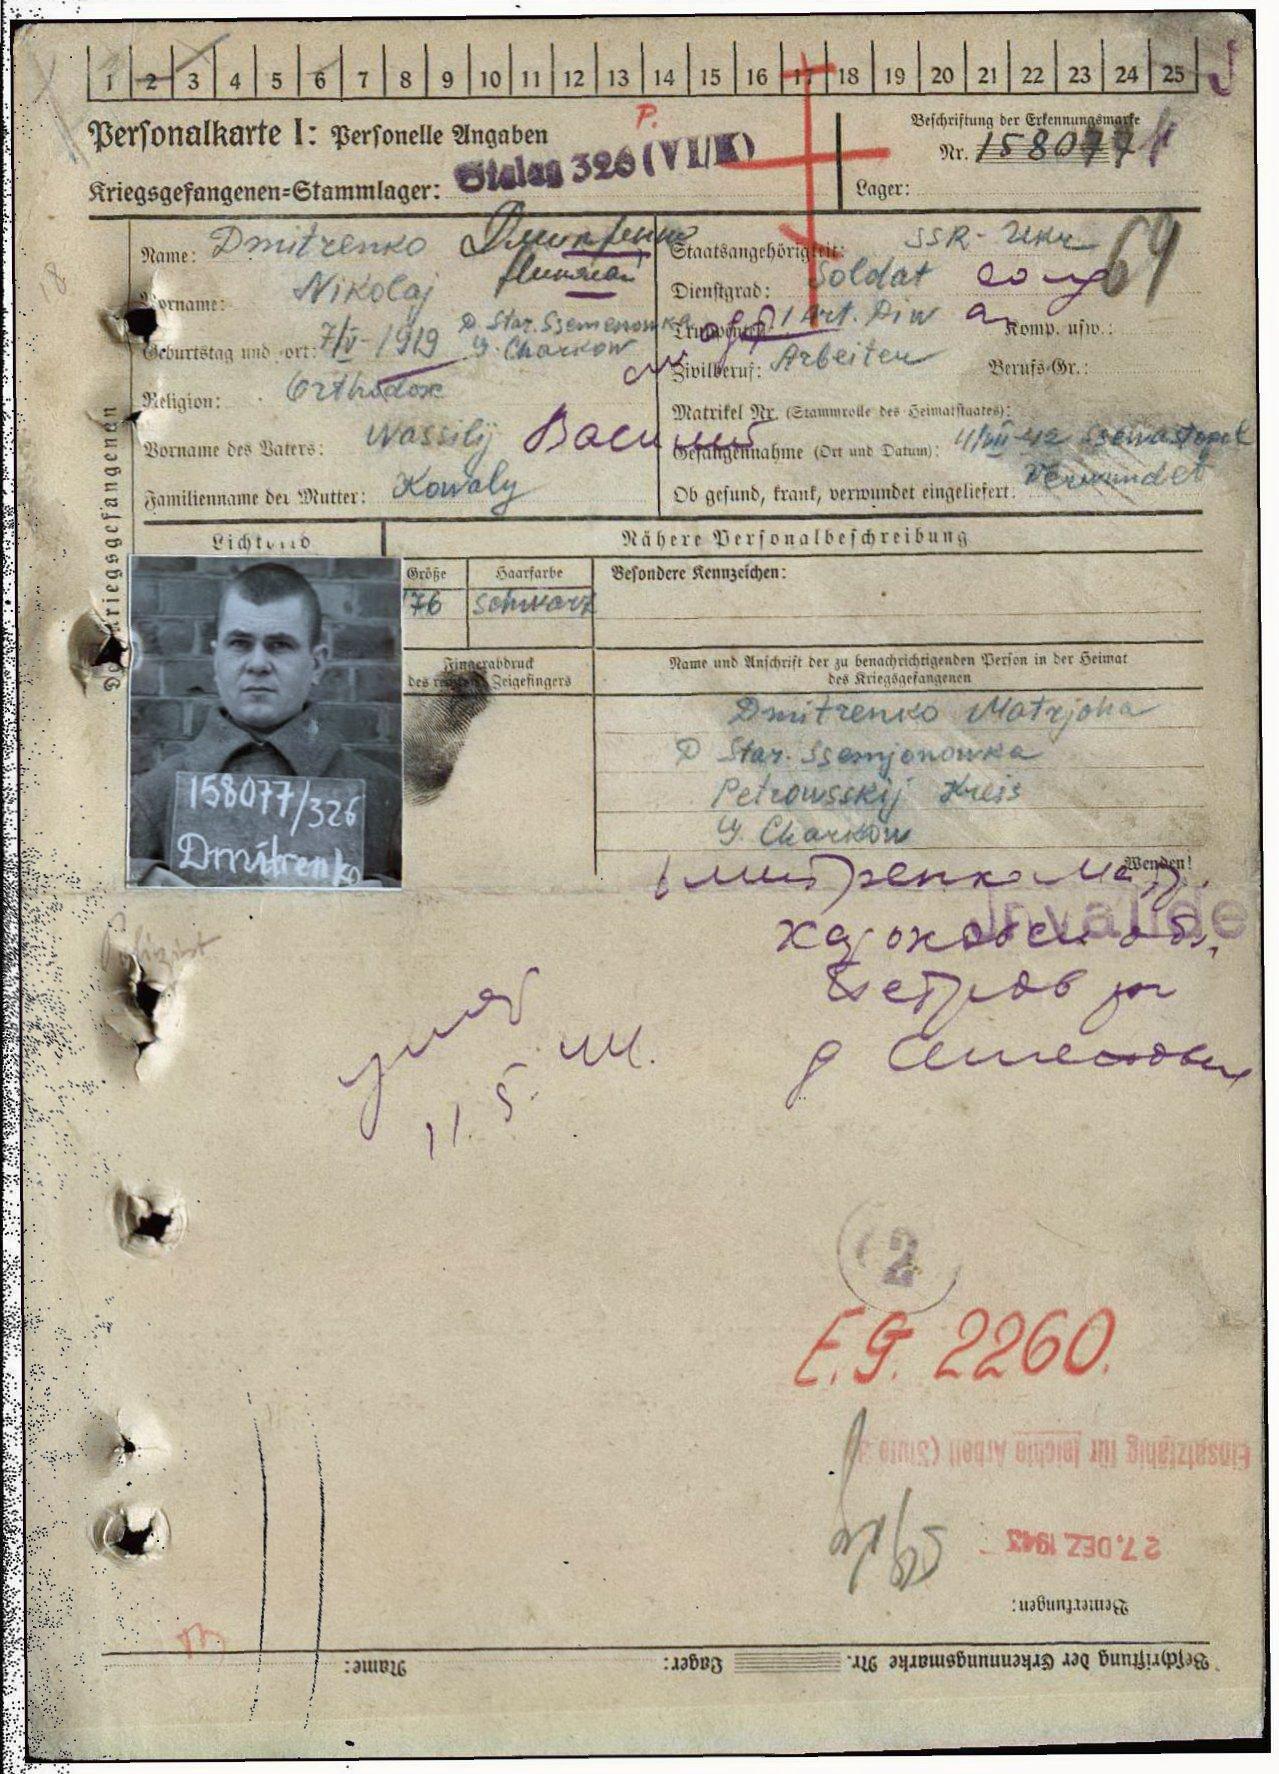 1 2 3 4 5 6 7 8 9 10 11 12 13 14 15 16 17 18 19 20 21 22 23 24 25
P.
Personalkarte I: Personelle Angaben
Beschriftung der Erkennungsmarke
Nr. 158077
Kriegsgefangenen=Stammlager: Stalag 326 (VI/K)
Lager:
Name: Dmitrenko Дмитренко
Николай
Vorname: Nikolaj
Geburtstag und =ort: 7/V-1919 D. Star. Ssemenowka
G. Charkow
Religion: Orthodox
Vorname des Vaters: Wassilij Василий
Familienname der Mutter: Kowaly
Staatsangehörigkeit: SSR - Ukr
69
Dienstgrad: Soldat
Truppenteil: 1 Art. Div Komp. usw.:
Zivilberuf: Arbeiter Berufs-Gr.:
Matrikel Nr. (Stammrolle des Heimatstaates):
Gefangennahme (Ort und Datum): 4/VII-42 Ssewastopol
Ob gesund, krank, verwundet eingeliefert: Verwundet
Des Kriegsgefangenen
Lichtbild
Nähere Personalbeschreibung
Größe Haarfarbe Besondere Kennzeichen:
176 schwarz
Fingerabdruck
des rechten Zeigefingers
Name und Anschrift der zu benachrichtigenden Person in der Heimat
des Kriegsgefangenen
Dmitrenko Matrjona
D Star. Ssemjonowka
Petrowsskij Kreis
G. Charkow
158077/326
Dmitrenko
Wenden!
Invalide
Дмитренко Мат.
Харьковск обл.
Петров рн
д Семеновк
Polizist
умер
11. 5.
2
E.G. 2260.
Einsatzfähig für leichte Arbeit (Stufe
27. DEZ. 1943
Bemerkungen:
Beschriftung der Erkennungsmarke Nr. Lager: Name: